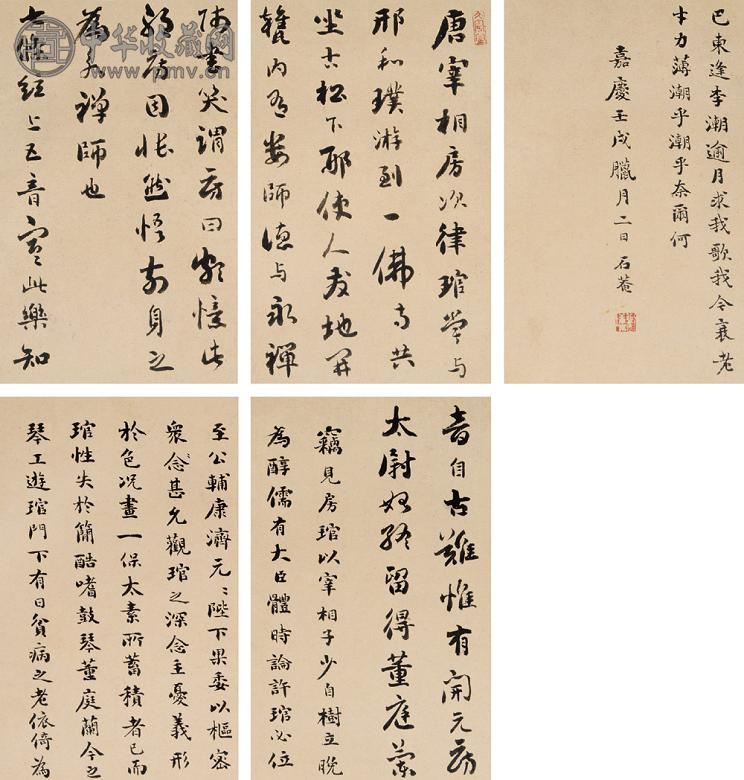 唐宰相房次律琯嘗與
邢和璞游到一佛寺共
坐古松下邢使人發地
甕內有婁師德與永禪
師書笑謂房曰頗憶此
邪房因悵然悟前身之
為永禪師也
七條絃上五音寒此樂知
音自古難惟有開元房
太尉始終留得董庭蘭
竊見房琯以宰相子少自樹立晚
為醇儒有大臣體時論許琯必位
至公輔康濟元〻陛下果委以樞密
眾念甚允觀琯之深念主憂義形
於色況畫一保太素所蓄積者已而
琯性失於簡酷嗜鼓琴董庭蘭今之
琴工遊琯門下有日貧病之老依倚為
巴東逢李潮逾月求我歌我今衰老
才力薄潮乎潮乎奈爾何
嘉慶壬戌臘月二日石菴
中华收藏网
www.pmv.cn